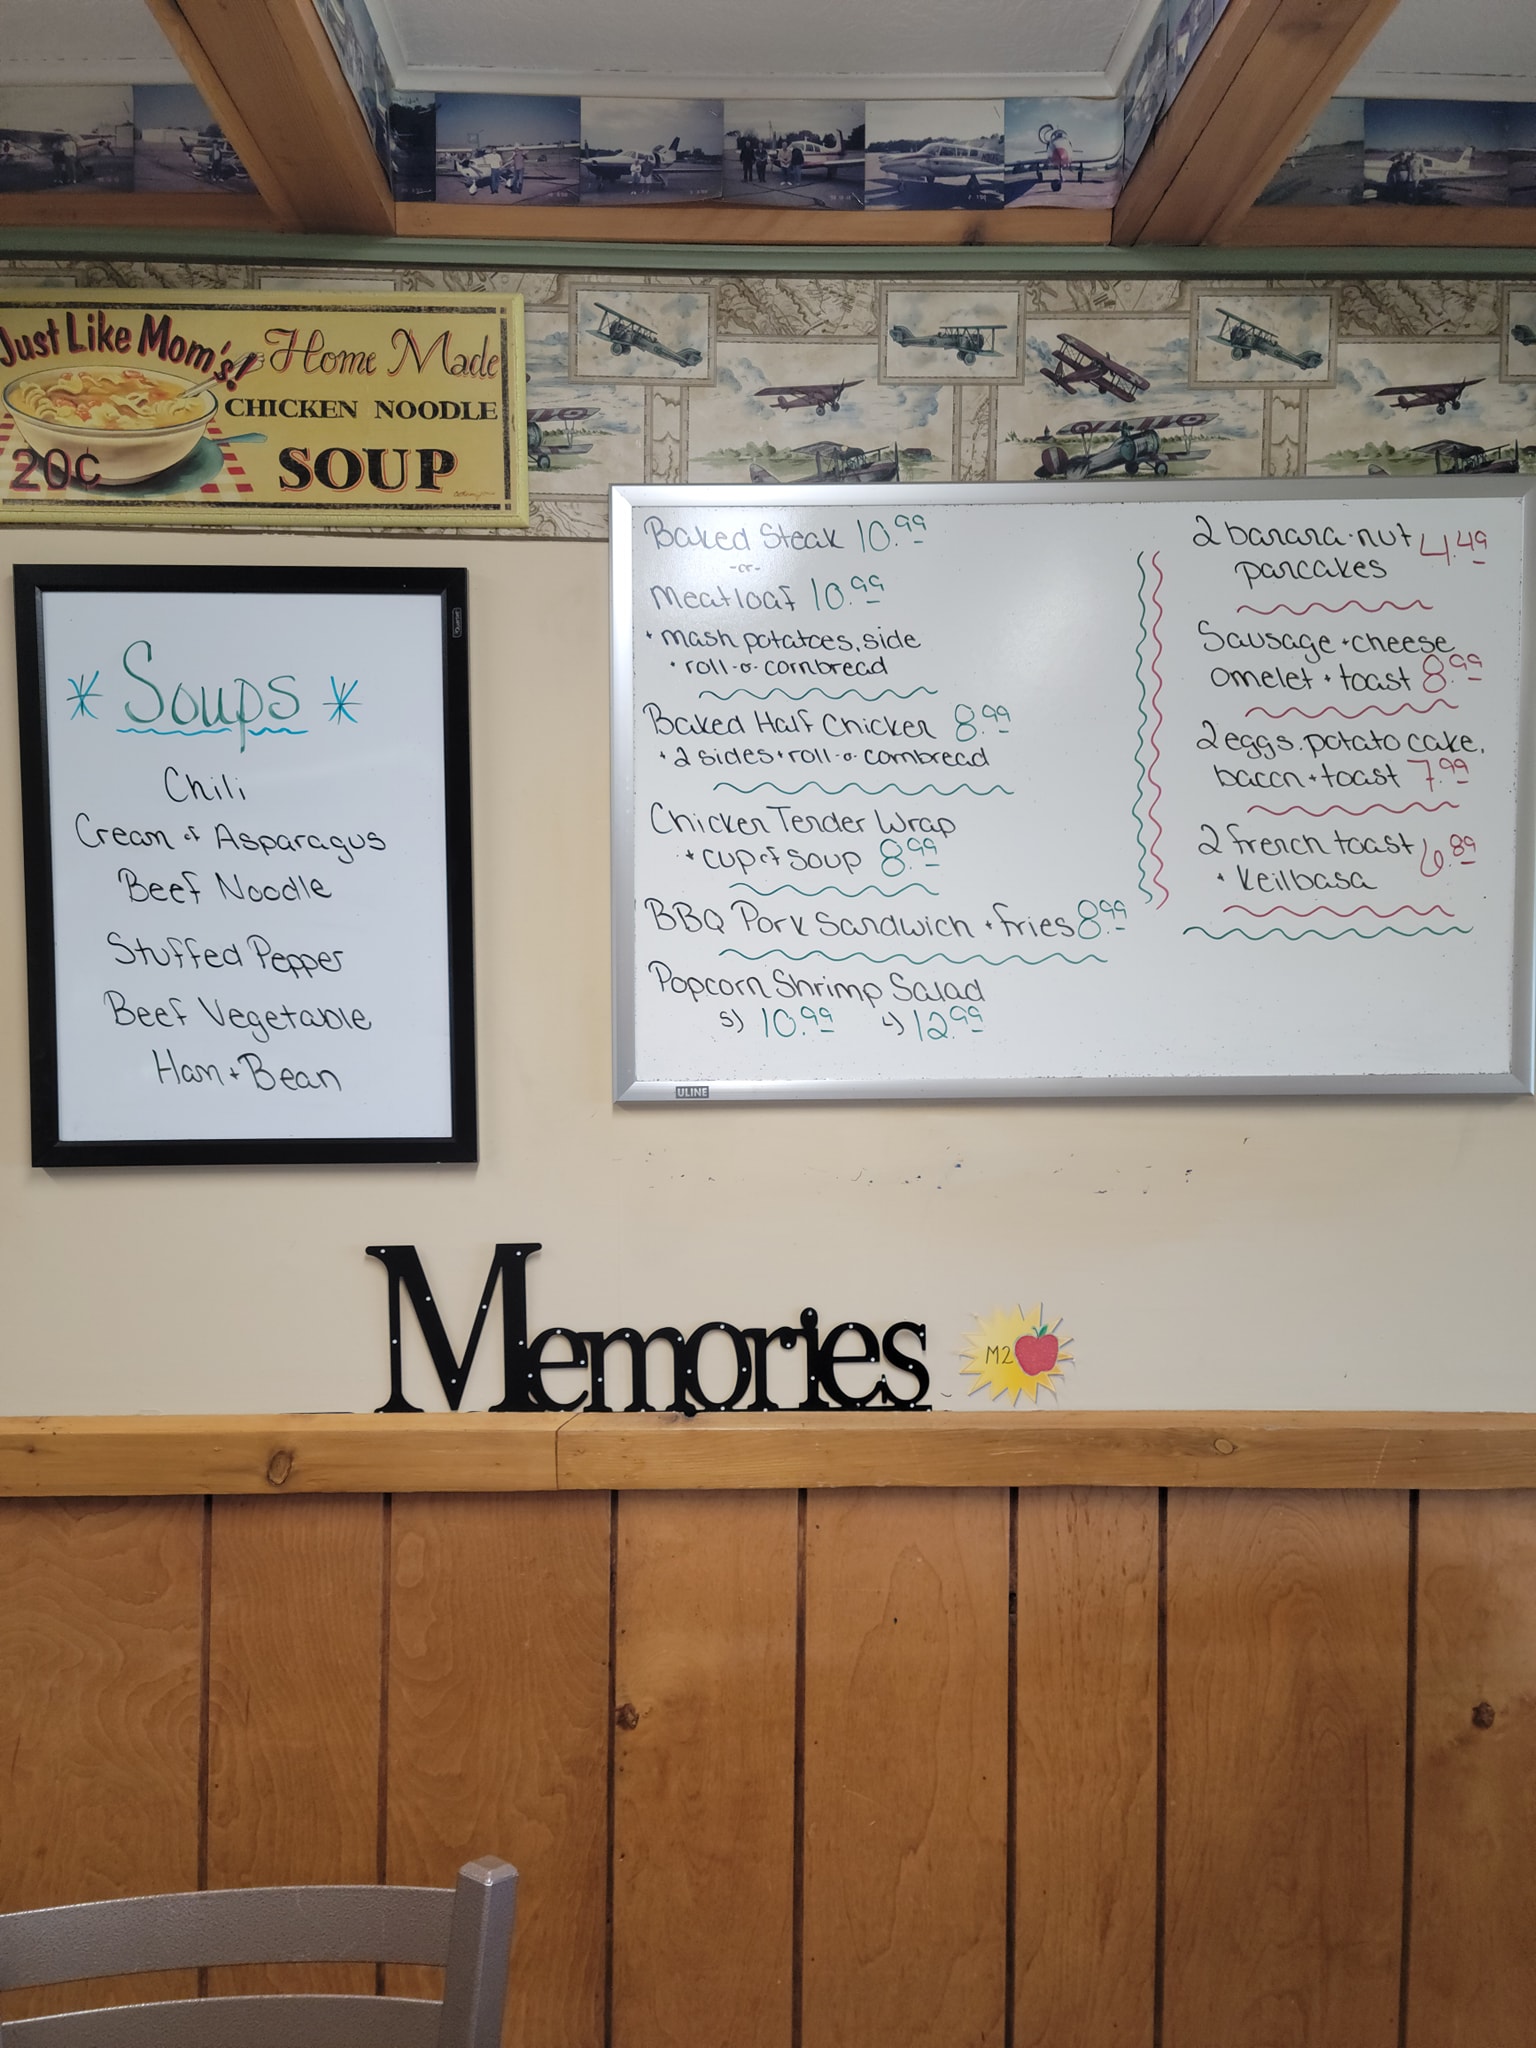 Just Like Mom's!
Home Made
CHICKEN NOODLE
SOUP
20¢
* Soups *
Chili
Cream of Asparagus
Beef Noodle
Stuffed Pepper
Beef Vegetable
Ham + Bean
Baked Steak 10.99
-or-
Meatloaf 10.99
+ mash potatoes, side
+ roll -or- cornbread
Baked Half Chicken 8.99
+ 2 sides + roll -or- cornbread
Chicken Tender Wrap
+ cup of soup 8.99
BBQ Pork Sandwich + fries 8.99
Popcorn Shrimp Salad
S) 10.99 L) 12.99
2 banana-nut 4.49
pancakes
Sausage + cheese
omelet + toast 8.99
2 eggs, potato cake,
bacon + toast 7.99
2 french toast 6.89
+ Keilbasa
ULINE
Memories
M2